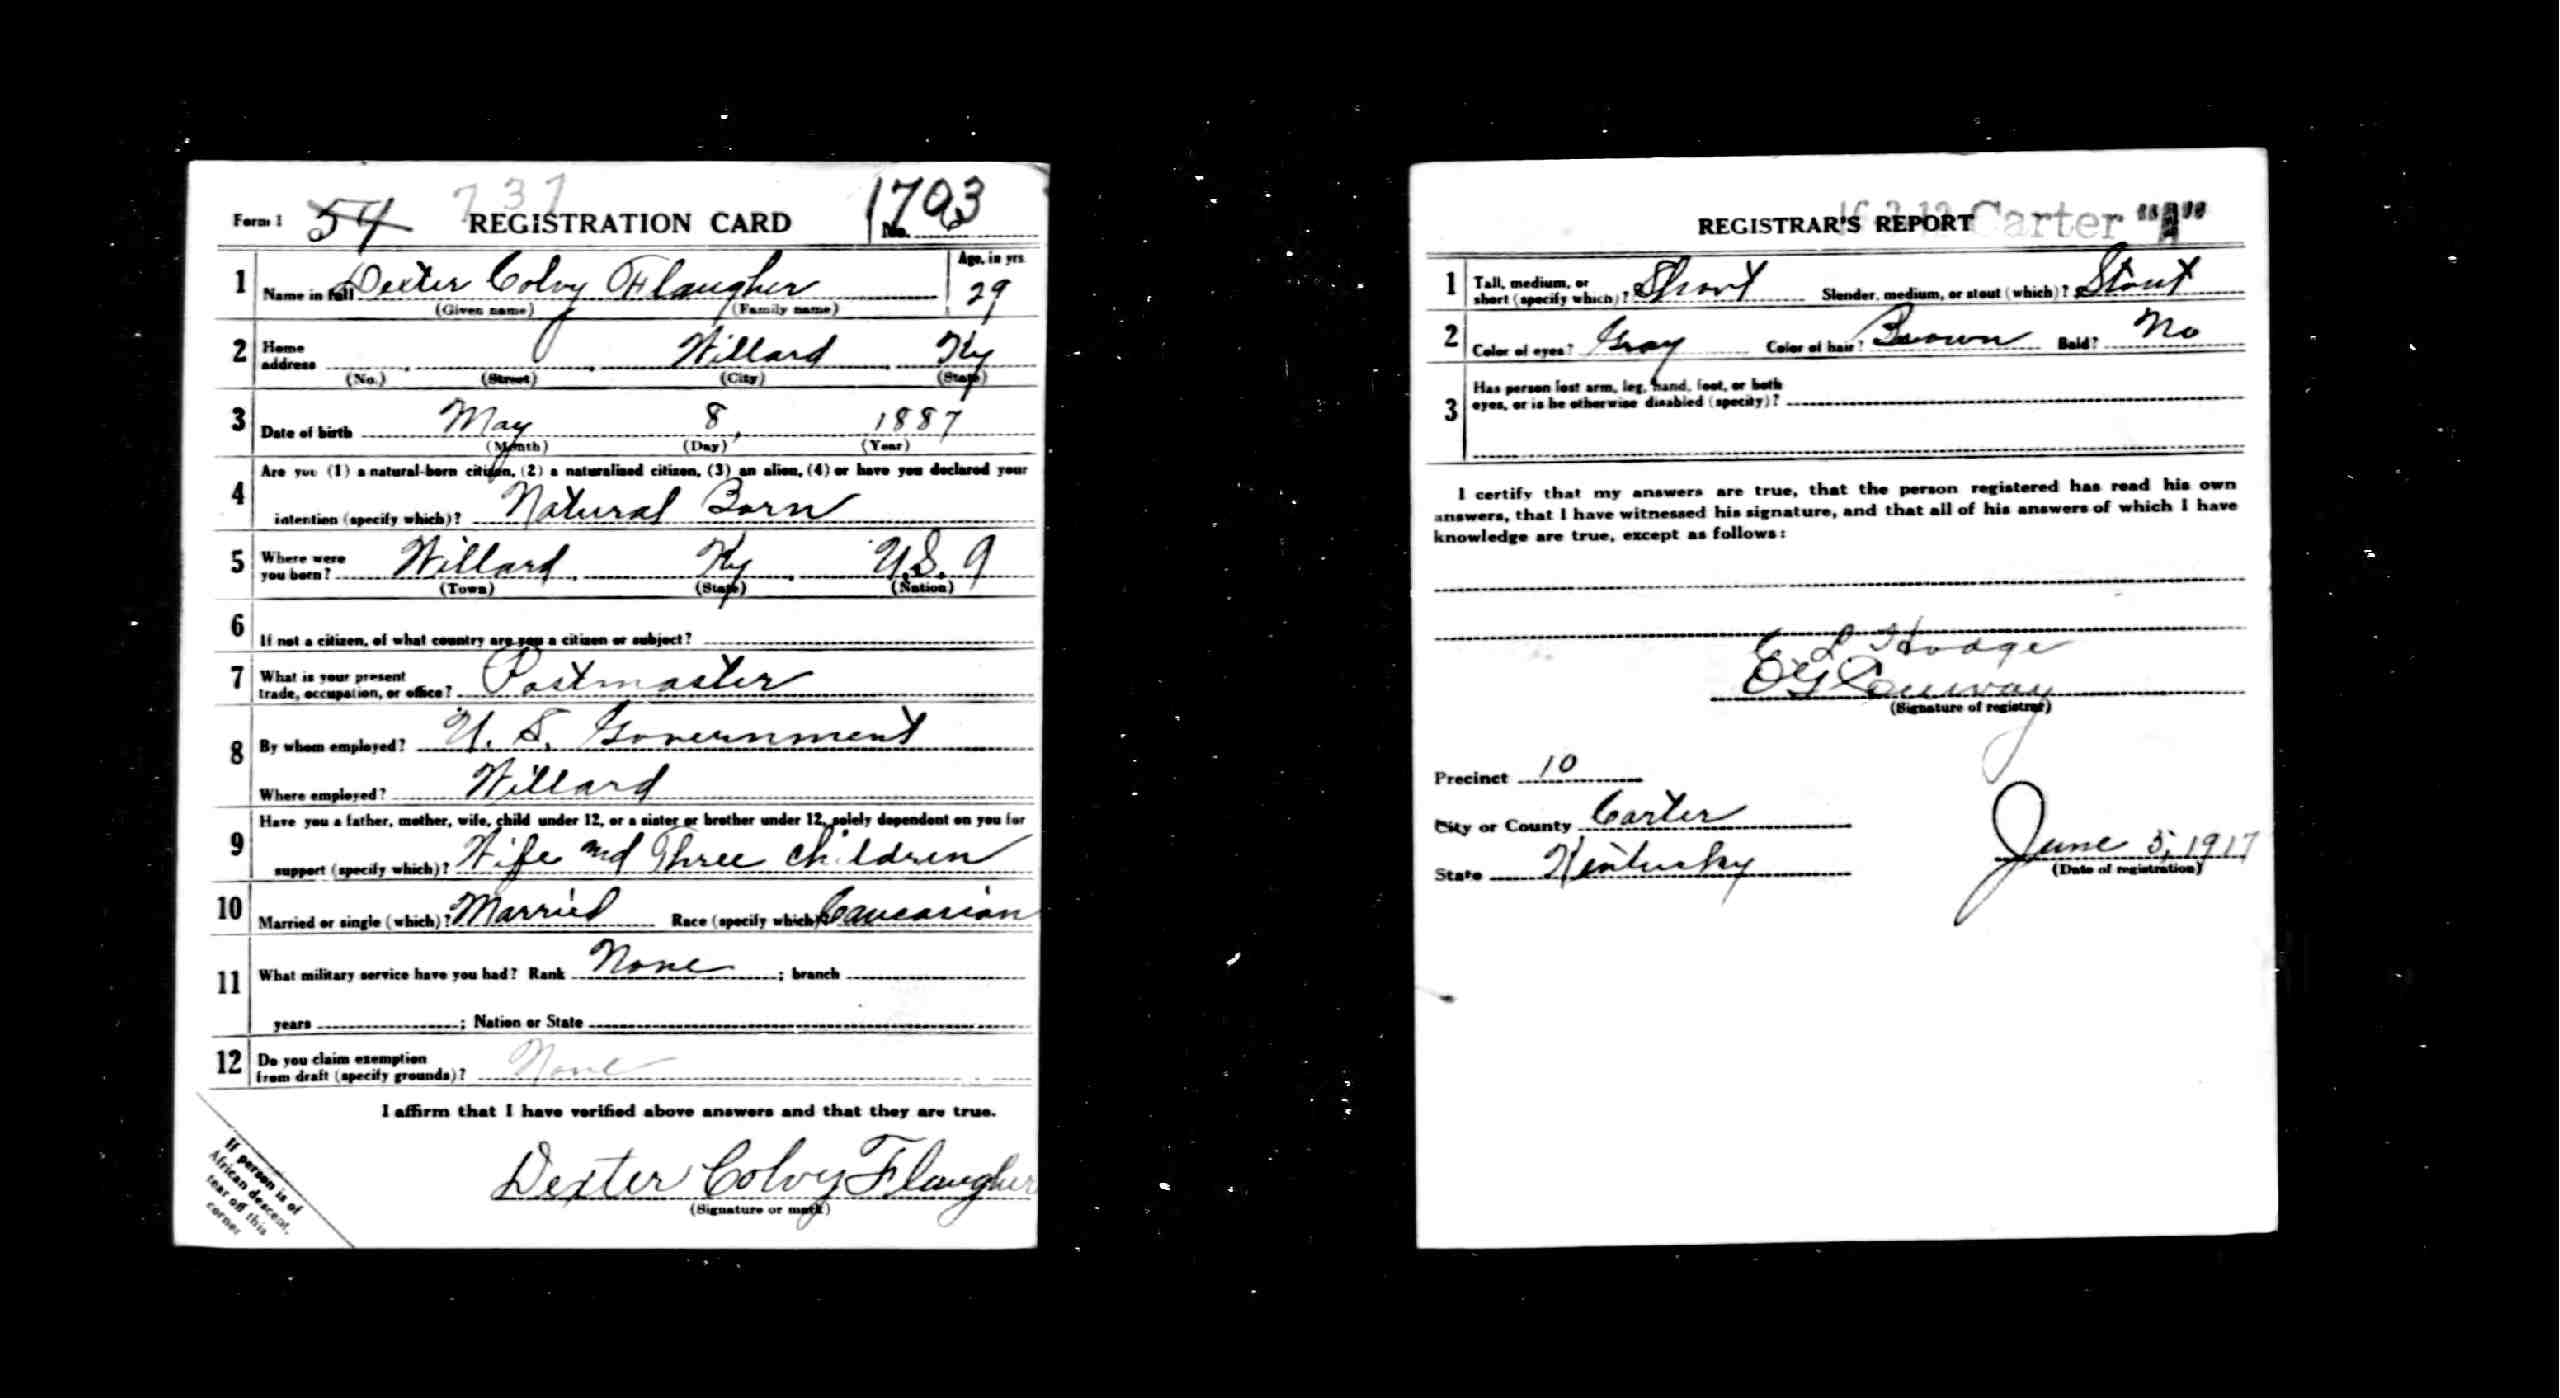 Form 1 54 737 REGISTRATION CARD No. 1793
1 Name in full Dexter Colvy Flaugher Age, in yrs. 29
(Given name) (Family name)
2 Home address Willard Ky
(No.) (Street) (City) (State)
3 Date of birth May 8, 1887
(Month) (Day) (Year)
4 Are you (1) a natural-born citizen, (2) a naturalized citizen, (3) an alien, (4) or have you declared your
intention (specify which)? Natural Born
5 Where were you born? Willard Ky U.S. A
(Town) (State) (Nation)
6 If not a citizen, of what country are you a citizen or subject?
7 What is your present
trade, occupation, or office? Postmaster
8 By whom employed? U. S. Government
Where employed? Willard
9 Have you a father, mother, wife, child under 12, or a sister or brother under 12, solely dependent on you for
support (specify which)? Wife and Three children
10 Married or single (which)? Married Race (specify which)? Caucasian
11 What military service have you had? Rank None ; branch
years ; Nation or State
12 Do you claim exemption
from draft (specify grounds)? None
I affirm that I have verified above answers and that they are true.
Dexter Colvy Flaugher
(Signature or mark)
If person is of
African descent,
tear off this
corner
REGISTRAR'S REPORT Carter "A"
1 Tall, medium, or
short (specify which)? Short Slender, medium, or stout (which)? Stout
2 Color of eyes? Gray Color of hair? Brown Bald? No
3 Has person lost arm, leg, hand, foot, or both
eyes, or is he otherwise disabled (specify)?
I certify that my answers are true, that the person registered has read his own
answers, that I have witnessed his signature, and that all of his answers of which I have
knowledge are true, except as follows:
L Hodge
(Signature of registrar)
Precinct 10
City or County Carter
State Kentucky
June 5, 1917
(Date of registration)